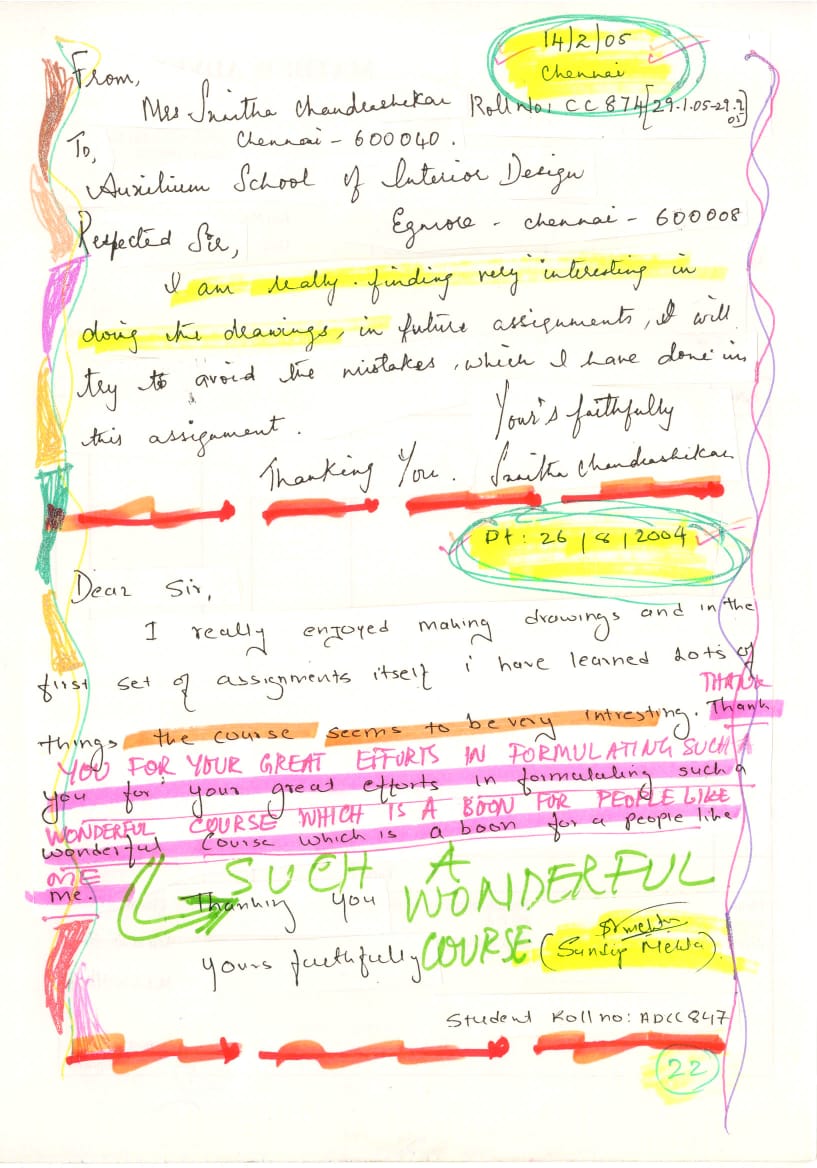 14/2/05
Chennai
From,
Mrs Smitha Chandrashekar Roll No: CC 874 [29.1.05-29.9.05]
Chennai - 600040.
To,
Auxilium School of Interior Design
Egmore - chennai - 600008
Respected Sir,
I am really finding very interesting in
doing the drawings, in future assignments, I will
try to avoid the mistakes, which I have done in
this assignment.
Your's faithfully
Thanking You. Smitha Chandrashekar
Dt: 26/8/2004
Dear Sir,
I really enjoyed making drawings and in the
first set of assignments itself i have learned Lots of
THANK
things the course seems to be very intresting. Thank
YOU FOR YOUR GREAT EFFORTS IN FORMULATING SUCH A
you for your great efforts in formulating such a
WONDERFUL COURSE WHICH IS A BOON FOR PEOPLE LIKE
wonderful Course which is a boon for a people like
ME
me.
SUCH A
WONDERFUL
COURSE
Thanking you
yours faithfully (Sandip Mehta)
Student Roll no: ADCC847
22